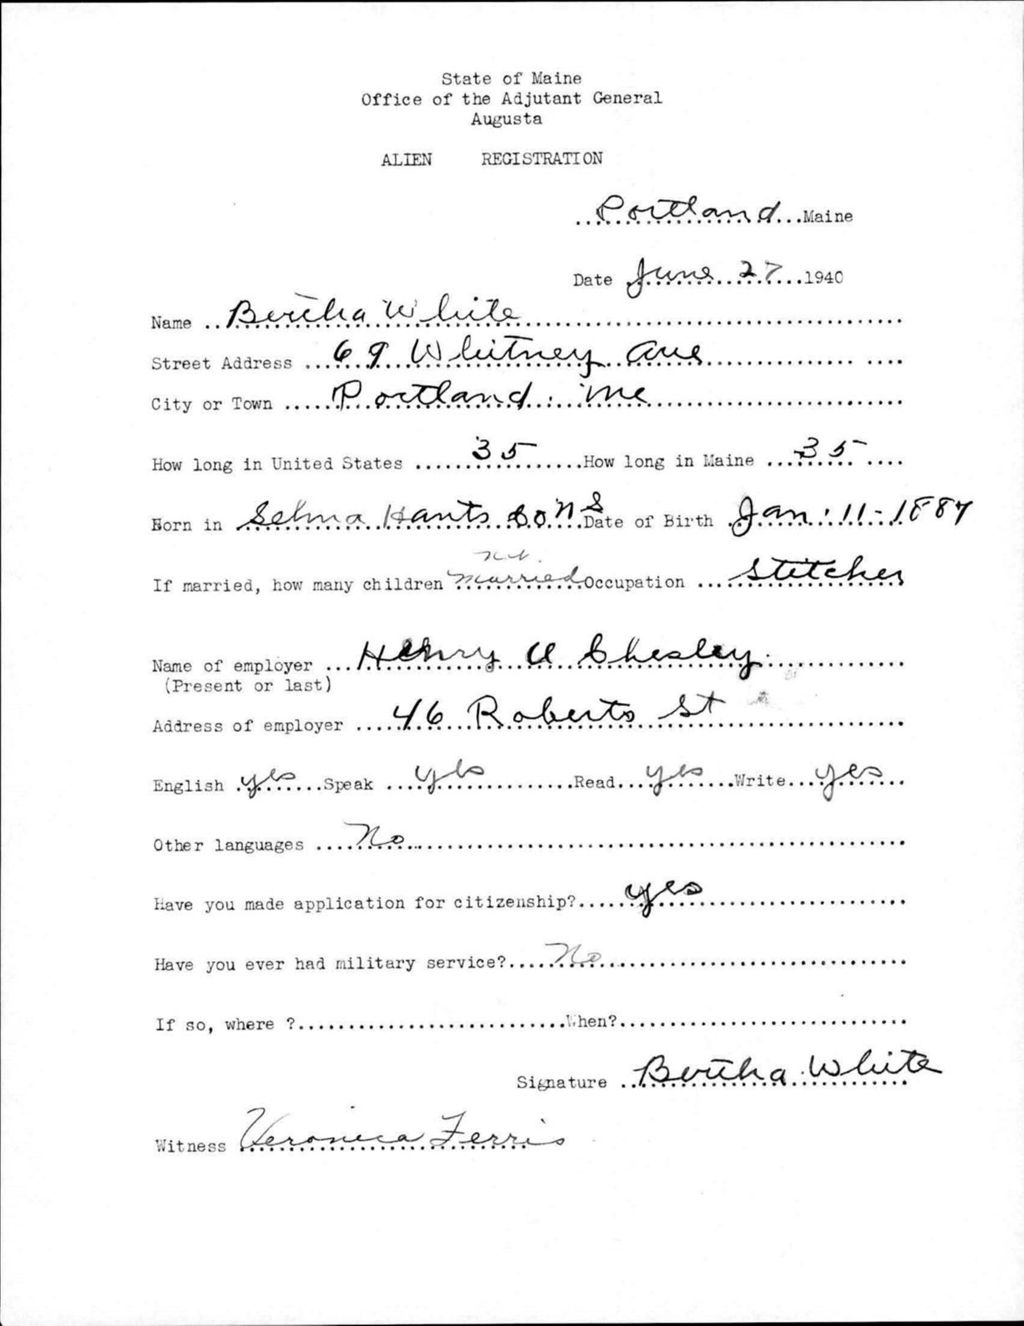 State of Maine
Office of the Adjutant General
Augusta
ALIEN REGISTRATION
Portland Maine
Date June 27 1940
Name Bertha White
Street Address 69 Whitney Ave
City or Town Portland. Me
How long in United States 35 How long in Maine 35
Born in Selma Hants Co N S Date of Birth Jan. 11-1887
not
If married, how many children married Occupation Stitcher
Name of employer Henry A Chesley
(Present or last)
Address of employer 46 Roberts St
English yes Speak yes Read yes Write yes
Other languages No
Have you made application for citizenship? yes
Have you ever had military service? No
If so, where ? When?
Signature Bertha White
Witness Veronica Ferris